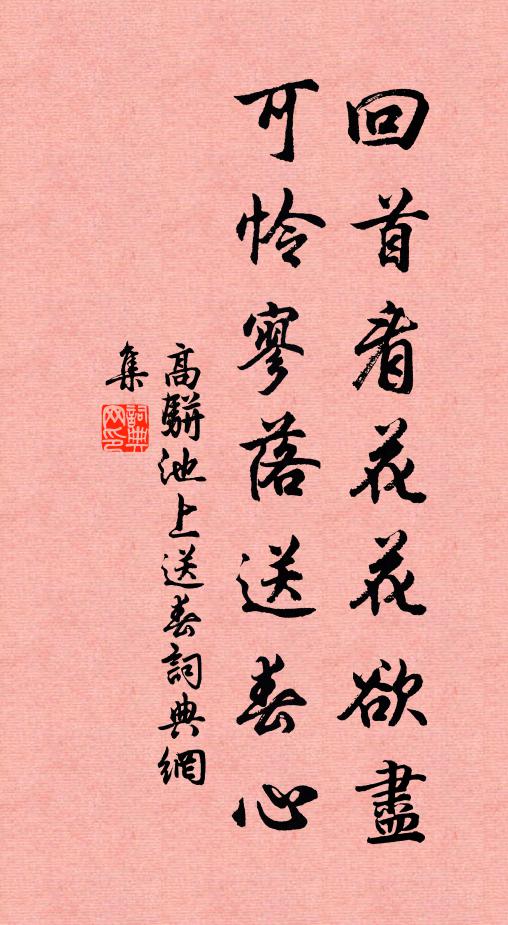 回首看花花欲盡
可怜寥落送春心
高駢池上送春詞典網
集
詞典
网印